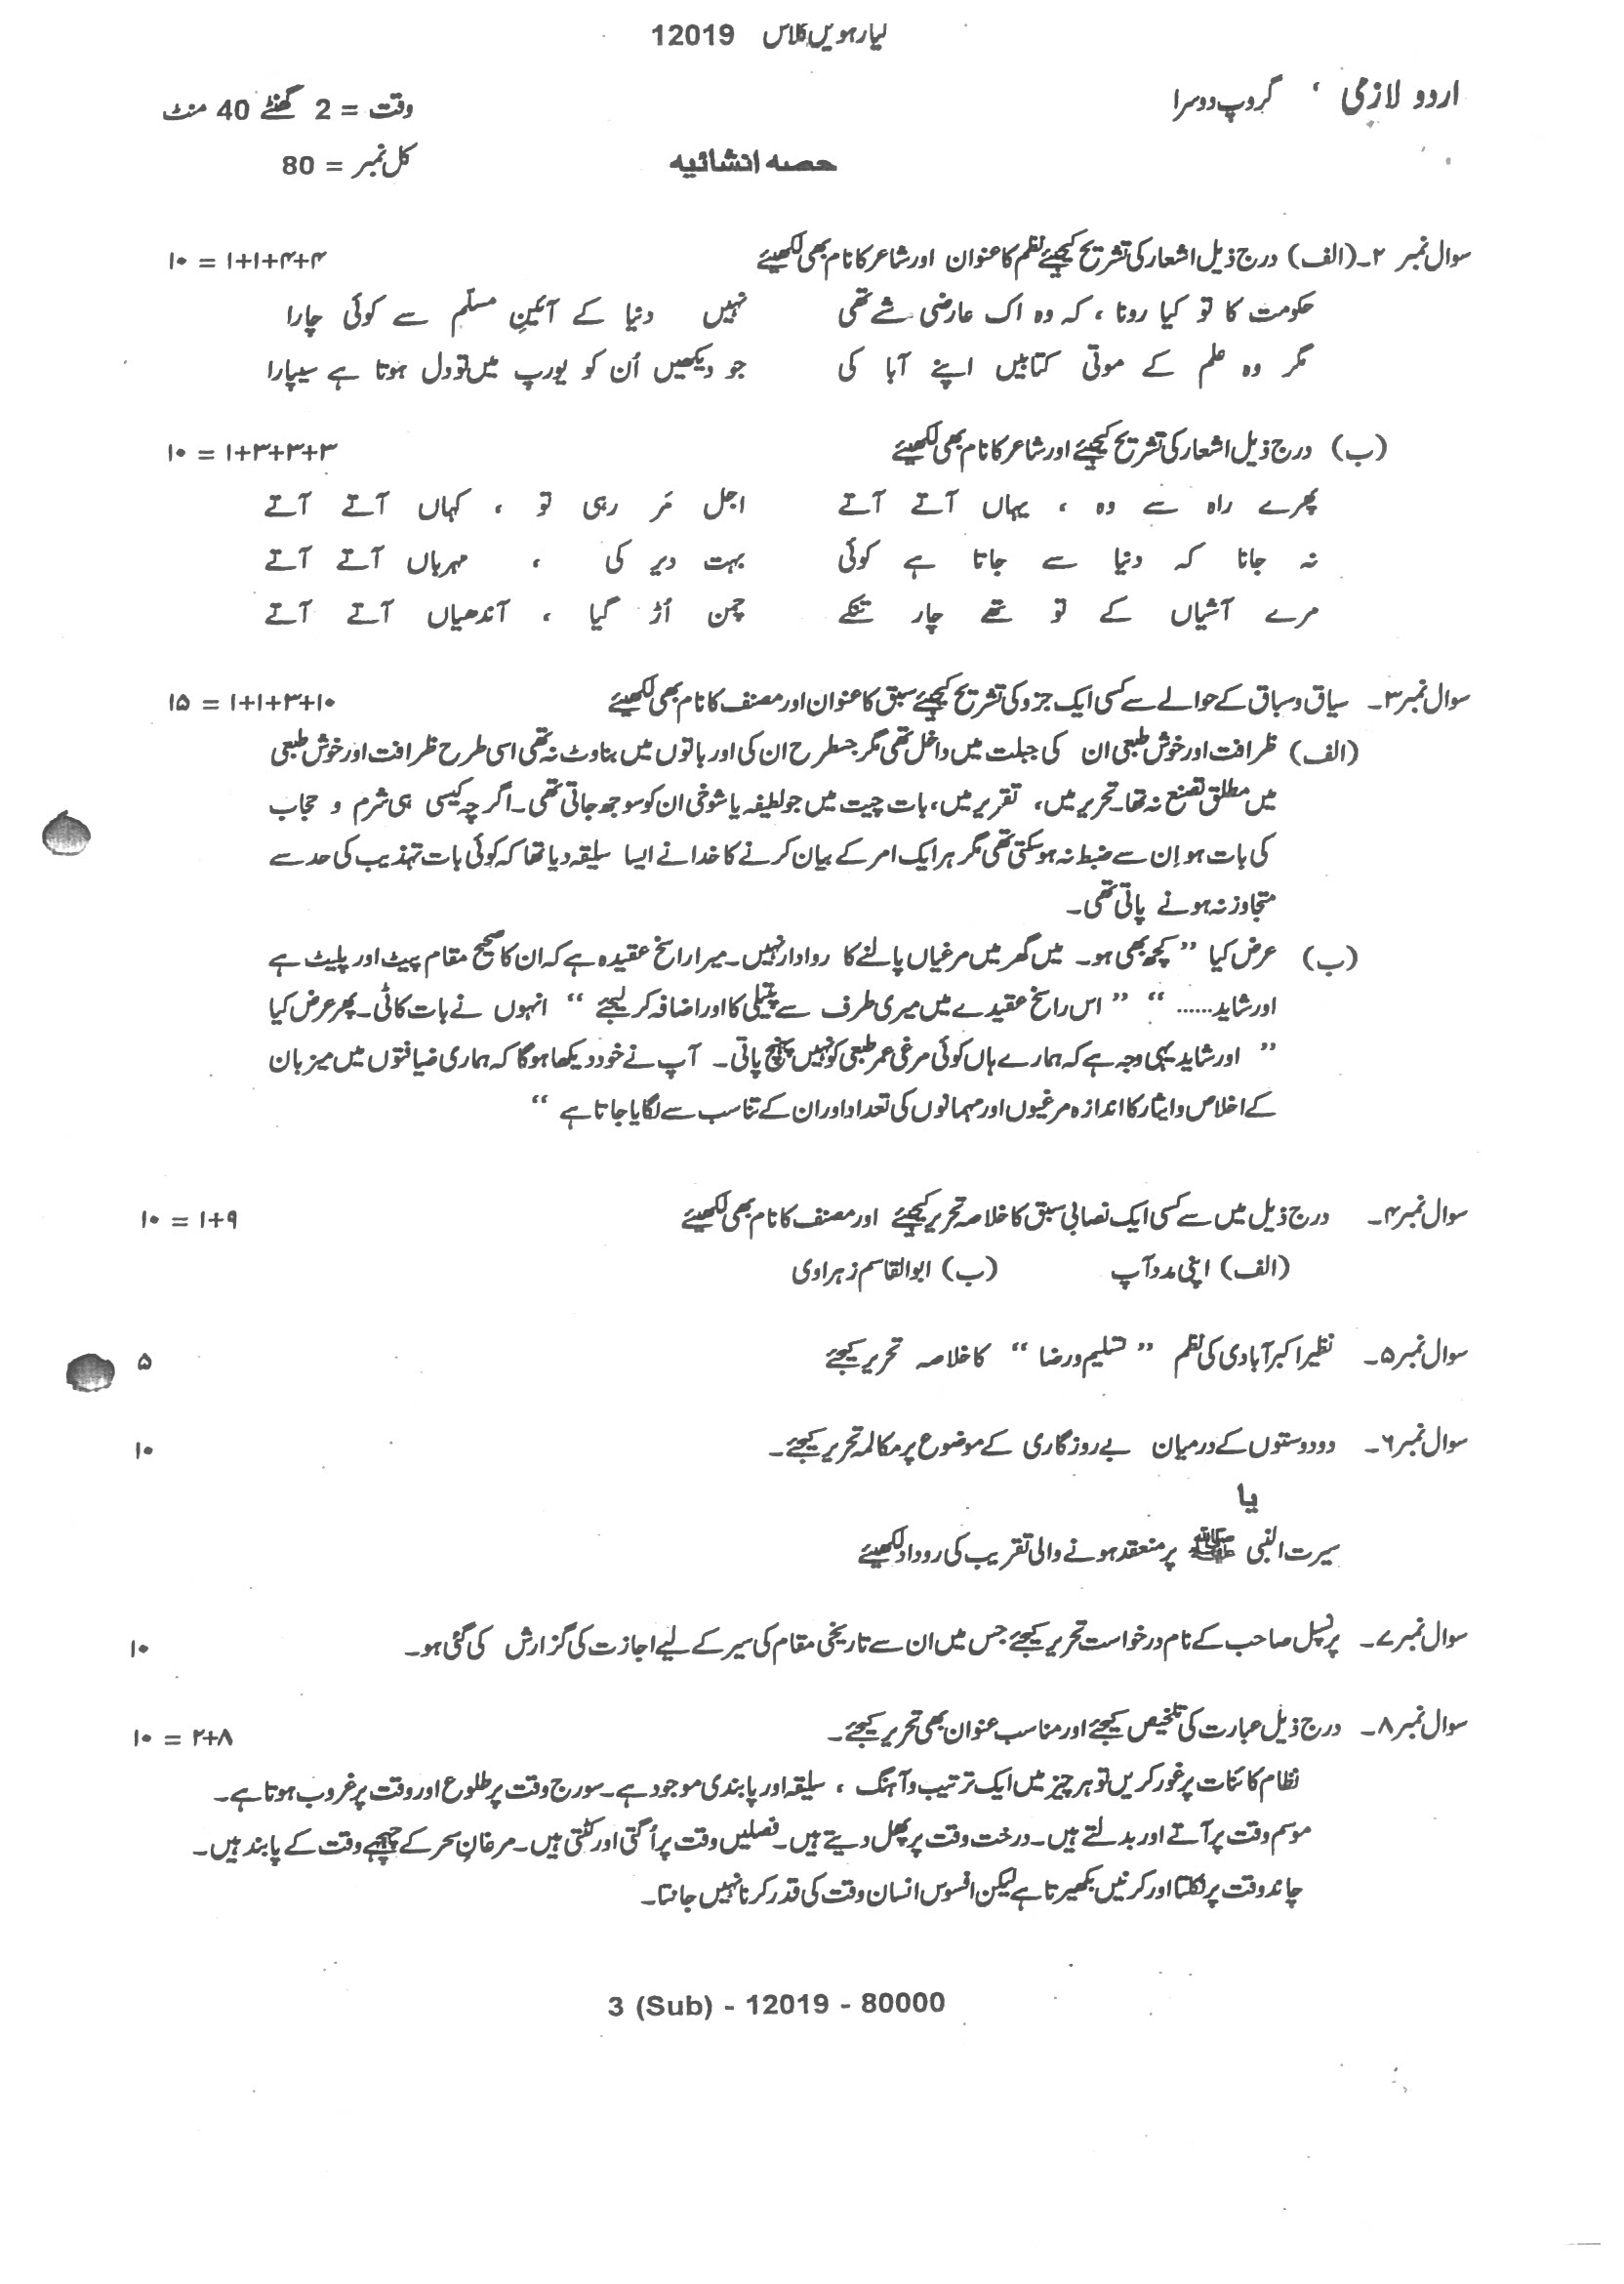 گیارھویں کلاس 12019
اردو لازمی ، گروپ دوسرا
وقت = 2 گھنٹے 40 منٹ
حصہ انشائیہ
کل نمبر = 80
سوال نمبر ۲۔ (الف) درج ذیل اشعار کی تشریح کیجیئے نظم کا عنوان اور شاعر کا نام بھی لکھیئے ۴+۴+۱+۱ = ۱۰
حکومت کا تو کیا رونا ، کہ وہ اک عارضی شے تھی نہیں دنیا کے آئینِ مسلّم سے کوئی چارا
مگر وہ علم کے موتی کتابیں اپنے آبا کی جو دیکھیں اُن کو یورپ میں تو دل ہوتا ہے سیپارا
(ب) درج ذیل اشعار کی تشریح کیجیئے اور شاعر کا نام بھی لکھیئے ۳+۳+۳+۱ = ۱۰
پھرے راہ سے وہ ، یہاں آتے آتے اجل مَر رہی تو ، کہاں آتے آتے
نہ جانا کہ دنیا سے جاتا ہے کوئی بہت دیر کی ، مہرباں آتے آتے
مرے آشیاں کے تو تھے چار تنکے چمن اُڑ گیا ، آندھیاں آتے آتے
سوال نمبر ۳۔ سیاق و سباق کے حوالے سے کسی ایک جزو کی تشریح کیجیئے سبق کا عنوان اور مصنف کا نام بھی لکھیئے ۱۰+۳+۱+۱ = ۱۵
(الف) ظرافت اور خوش طبعی ان کی جبلت میں داخل تھی مگر جسطرح ان کی اور باتوں میں بناوٹ نہ تھی اسی طرح ظرافت اور خوش طبعی
میں مطلق تصنع نہ تھا۔ تحریر میں، تقریر میں، بات چیت میں جو لطیفہ یا شوخی ان کو سوجھ جاتی تھی۔ اگرچہ کیسی ہی شرم و حجاب
کی بات ہو اِن سے ضبط نہ ہو سکتی تھی مگر ہر ایک امر کے بیان کرنے کا خدا نے ایسا سلیقہ دیا تھا کہ کوئی بات تہذیب کی حد سے
متجاوز نہ ہونے پاتی تھی۔
(ب) عرض کیا ” کچھ بھی ہو۔ میں گھر میں مرغیاں پالنے کا روادار نہیں۔ میرا راسخ عقیدہ ہے کہ ان کا صحیح مقام پیٹ اور پلیٹ ہے
اور شاید ...... “ ” اس راسخ عقیدے میں میری طرف سے پتیلی کا اور اضافہ کر لیجئے “ انہوں نے بات کاٹی۔ پھر عرض کیا
” اور شاید یہی وجہ ہے کہ ہمارے ہاں کوئی مرغی عمر طبعی کو نہیں پہنچ پاتی۔ آپ نے خود دیکھا ہوگا کہ ہماری ضیافتوں میں میزبان
کے اخلاص و ایثار کا اندازہ مرغیوں اور مہمانوں کی تعداد اور ان کے تناسب سے لگایا جاتا ہے “
سوال نمبر ۴۔ درج ذیل میں سے کسی ایک نصابی سبق کا خلاصہ تحریر کیجیئے اور مصنف کا نام بھی لکھیئے ۹+۱ = ۱۰
(الف) اپنی مدد آپ (ب) ابوالقاسم زہراوی
سوال نمبر ۵۔ نظیر اکبر آبادی کی نظم ” تسلیم و رضا “ کا خلاصہ تحریر کیجئے ۵
سوال نمبر ۶۔ دو دوستوں کے درمیان بے روزگاری کے موضوع پر مکالمہ تحریر کیجئے۔ ۱۰
یا
سیرت النبی ﷺ پر منعقد ہونے والی تقریب کی روداد لکھیئے
سوال نمبر ۷۔ پرنسپل صاحب کے نام درخواست تحریر کیجئے جس میں ان سے تاریخی مقام کی سیر کے لیے اجازت کی گزارش کی گئی ہو۔ ۱۰
سوال نمبر ۸۔ درج ذیل عبارت کی تلخیص کیجئے اور مناسب عنوان بھی تحریر کیجئے۔ ۸+۲ = ۱۰
نظام کائنات پر غور کریں تو ہر چیز میں ایک ترتیب و آہنگ ، سلیقہ اور پابندی موجود ہے۔ سورج وقت پر طلوع اور وقت پر غروب ہوتا ہے۔
موسم وقت پر آتے اور بدلتے ہیں۔ درخت وقت پر پھل دیتے ہیں۔ فصلیں وقت پر اُگتی اور کٹتی ہیں۔ مرغانِ سحر کے چہچہے وقت کے پابند ہیں۔
چاند وقت پر نکلتا اور کرنیں بکھیرتا ہے لیکن افسوس انسان وقت کی قدر کرنا نہیں جانتا۔
3 (Sub) - 12019 - 80000